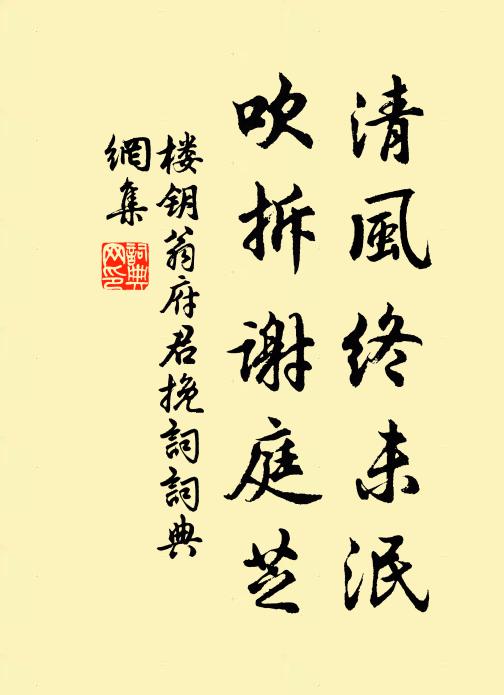 清風終未泯
吹拆谢庭芝
楼钥翁府君挽詞詞典
網集
詞典
网印